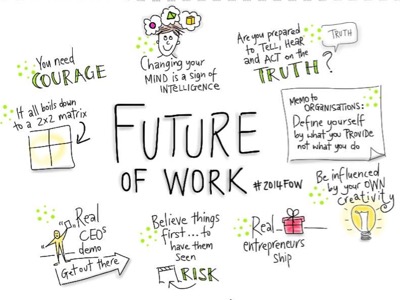 You need
COURAGE
Changing your
MIND is a sign of
INTELLIGENCE
Are you prepared
to TELL, HEAR
and ACT on the
TRUTH?
TRUTH
It all boils down
to a 2x2 matrix
FUTURE
OF WORK
#2014FOW
MEMO to
ORGANISATIONS:
Define yourself
by what you PROVIDE
not what you do
Real
CEOs
demo
Get out there
Believe things
first... to
have them
seen
RISK
Real
entrepreneurs
ship
Be influenced
by your OWN
creativity